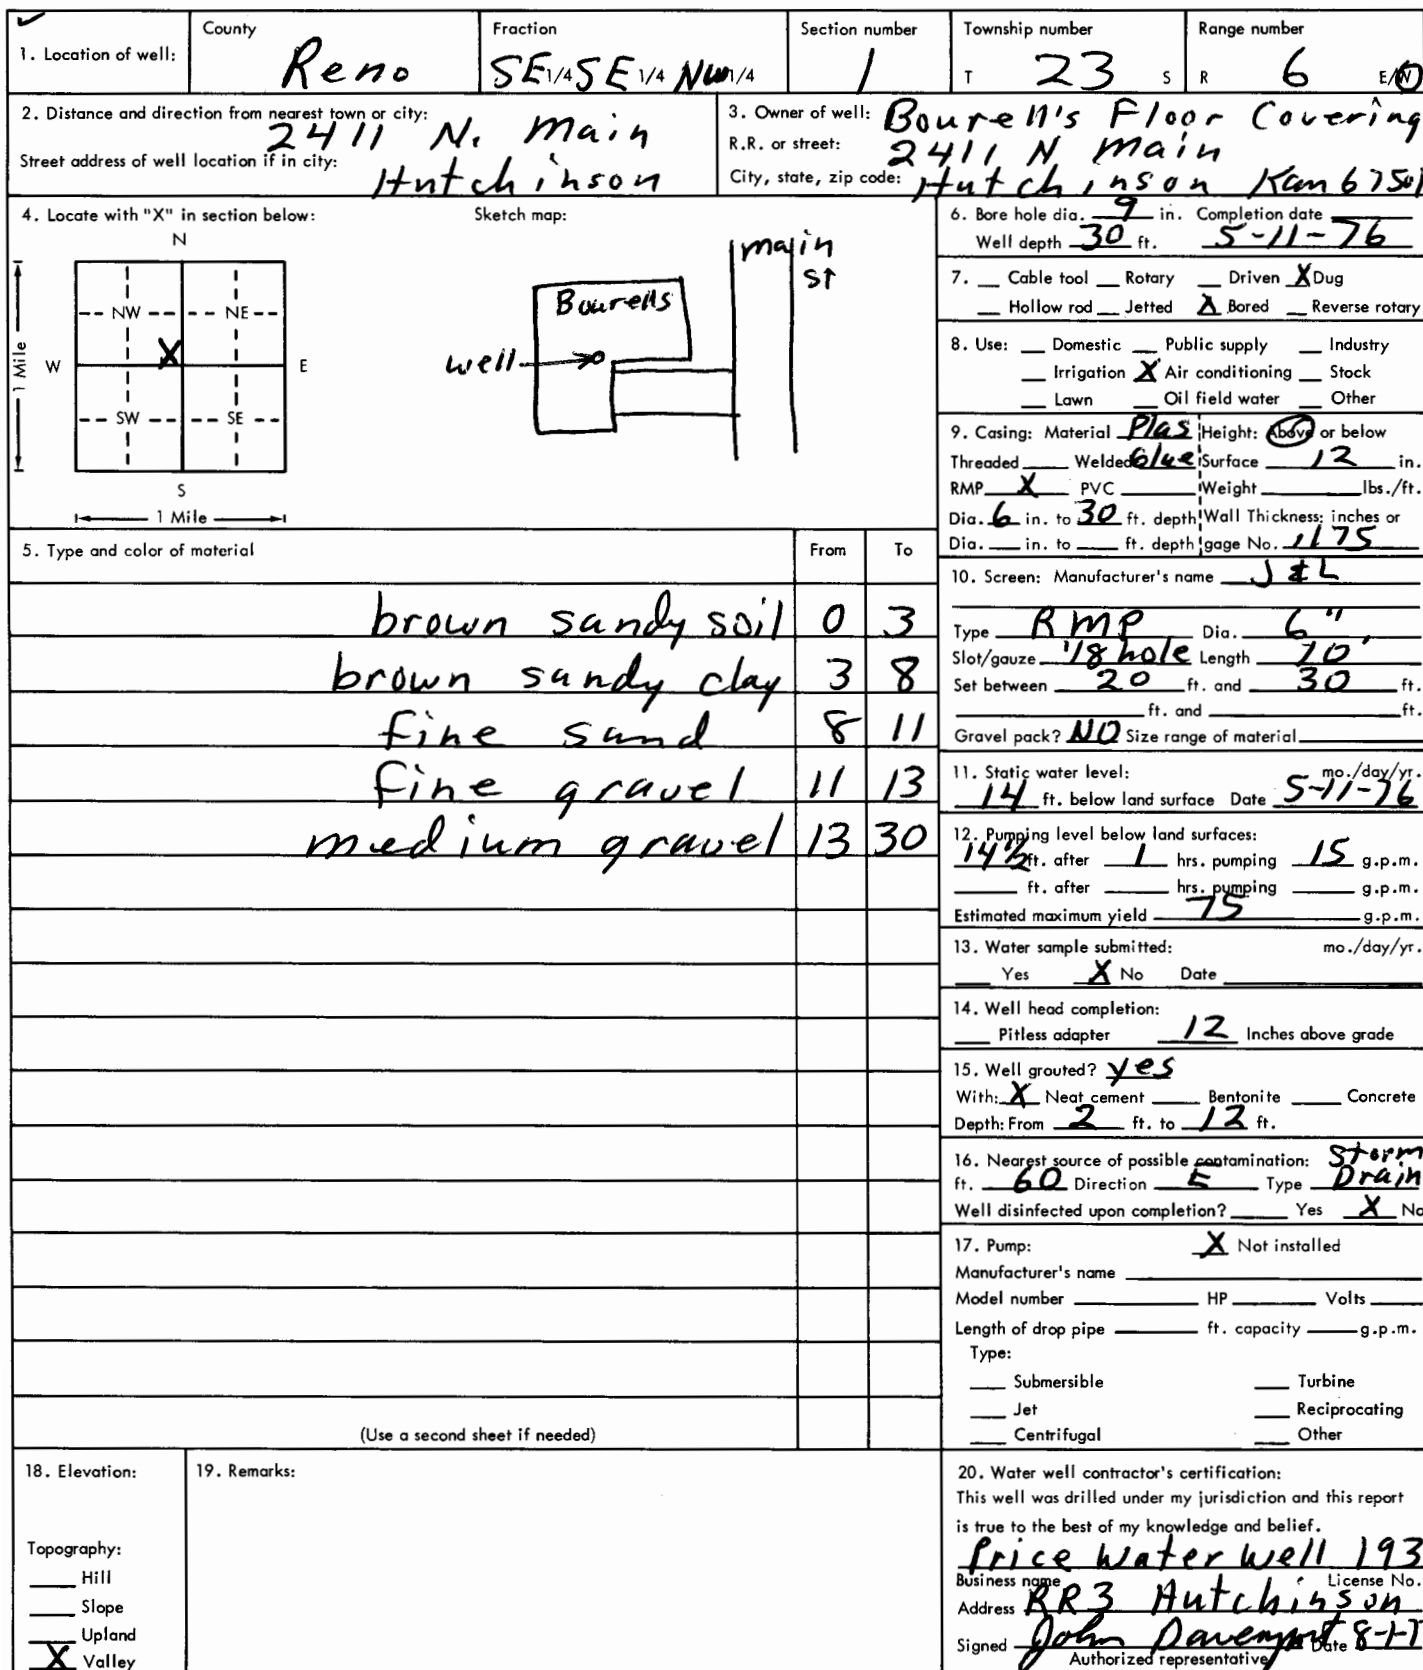 ✓
County Fraction Section number Township number Range number
1. Location of well: Reno SE 1/4 SE 1/4 NW 1/4 1 T 23 S R 6 E/W
2. Distance and direction from nearest town or city: 2411 N. Main
Street address of well location if in city: Hutchinson
3. Owner of well: Bourell's Floor Covering
R.R. or street: 2411 N Main
City, state, zip code: Hutchinson Kan 67501
4. Locate with "X" in section below:
N
NW NE
X
W E
SW SE
S
1 Mile
1 Mile
Sketch map:
main
St
Bourells
well
6. Bore hole dia. 9 in. Completion date
Well depth 30 ft. 5-11-76
7. Cable tool Rotary Driven X Dug
Hollow rod Jetted X Bored Reverse rotary
8. Use: Domestic Public supply Industry
Irrigation X Air conditioning Stock
Lawn Oil field water Other
9. Casing: Material Plas Height: Above or below
Threaded Welded Glue Surface 12 in.
RMP X PVC Weight lbs./ft.
Dia. 6 in. to 30 ft. depth Wall Thickness: inches or
Dia. in. to ft. depth gage No. .1175
5. Type and color of material From To
brown sandy soil 0 3
brown sandy clay 3 8
fine sand 8 11
fine gravel 11 13
medium gravel 13 30
(Use a second sheet if needed)
10. Screen: Manufacturer's name J & L
Type RMP Dia. 6"
Slot/gauze 1/8 hole Length 10'
Set between 20 ft. and 30 ft.
ft. and ft.
Gravel pack? NO Size range of material
11. Static water level: mo./day/yr.
14 ft. below land surface Date 5-11-76
12. Pumping level below land surfaces:
14 1/2 ft. after 1 hrs. pumping 15 g.p.m.
ft. after hrs. pumping g.p.m.
Estimated maximum yield 75 g.p.m.
13. Water sample submitted: mo./day/yr.
Yes X No Date
14. Well head completion:
Pitless adapter 12 Inches above grade
15. Well grouted? yes
With: X Neat cement Bentonite Concrete
Depth: From 2 ft. to 12 ft.
16. Nearest source of possible contamination: Storm
ft. 60 Direction E Type Drain
Well disinfected upon completion? Yes X No
17. Pump: X Not installed
Manufacturer's name
Model number HP Volts
Length of drop pipe ft. capacity g.p.m.
Type:
Submersible Turbine
Jet Reciprocating
Centrifugal Other
18. Elevation:
Topography:
Hill
Slope
Upland
X Valley
19. Remarks:
20. Water well contractor's certification:
This well was drilled under my jurisdiction and this report
is true to the best of my knowledge and belief.
Price Water Well 193
Business name License No.
Address RR3 Hutchinson
Signed John Davenport Date 8-1-7
Authorized representative